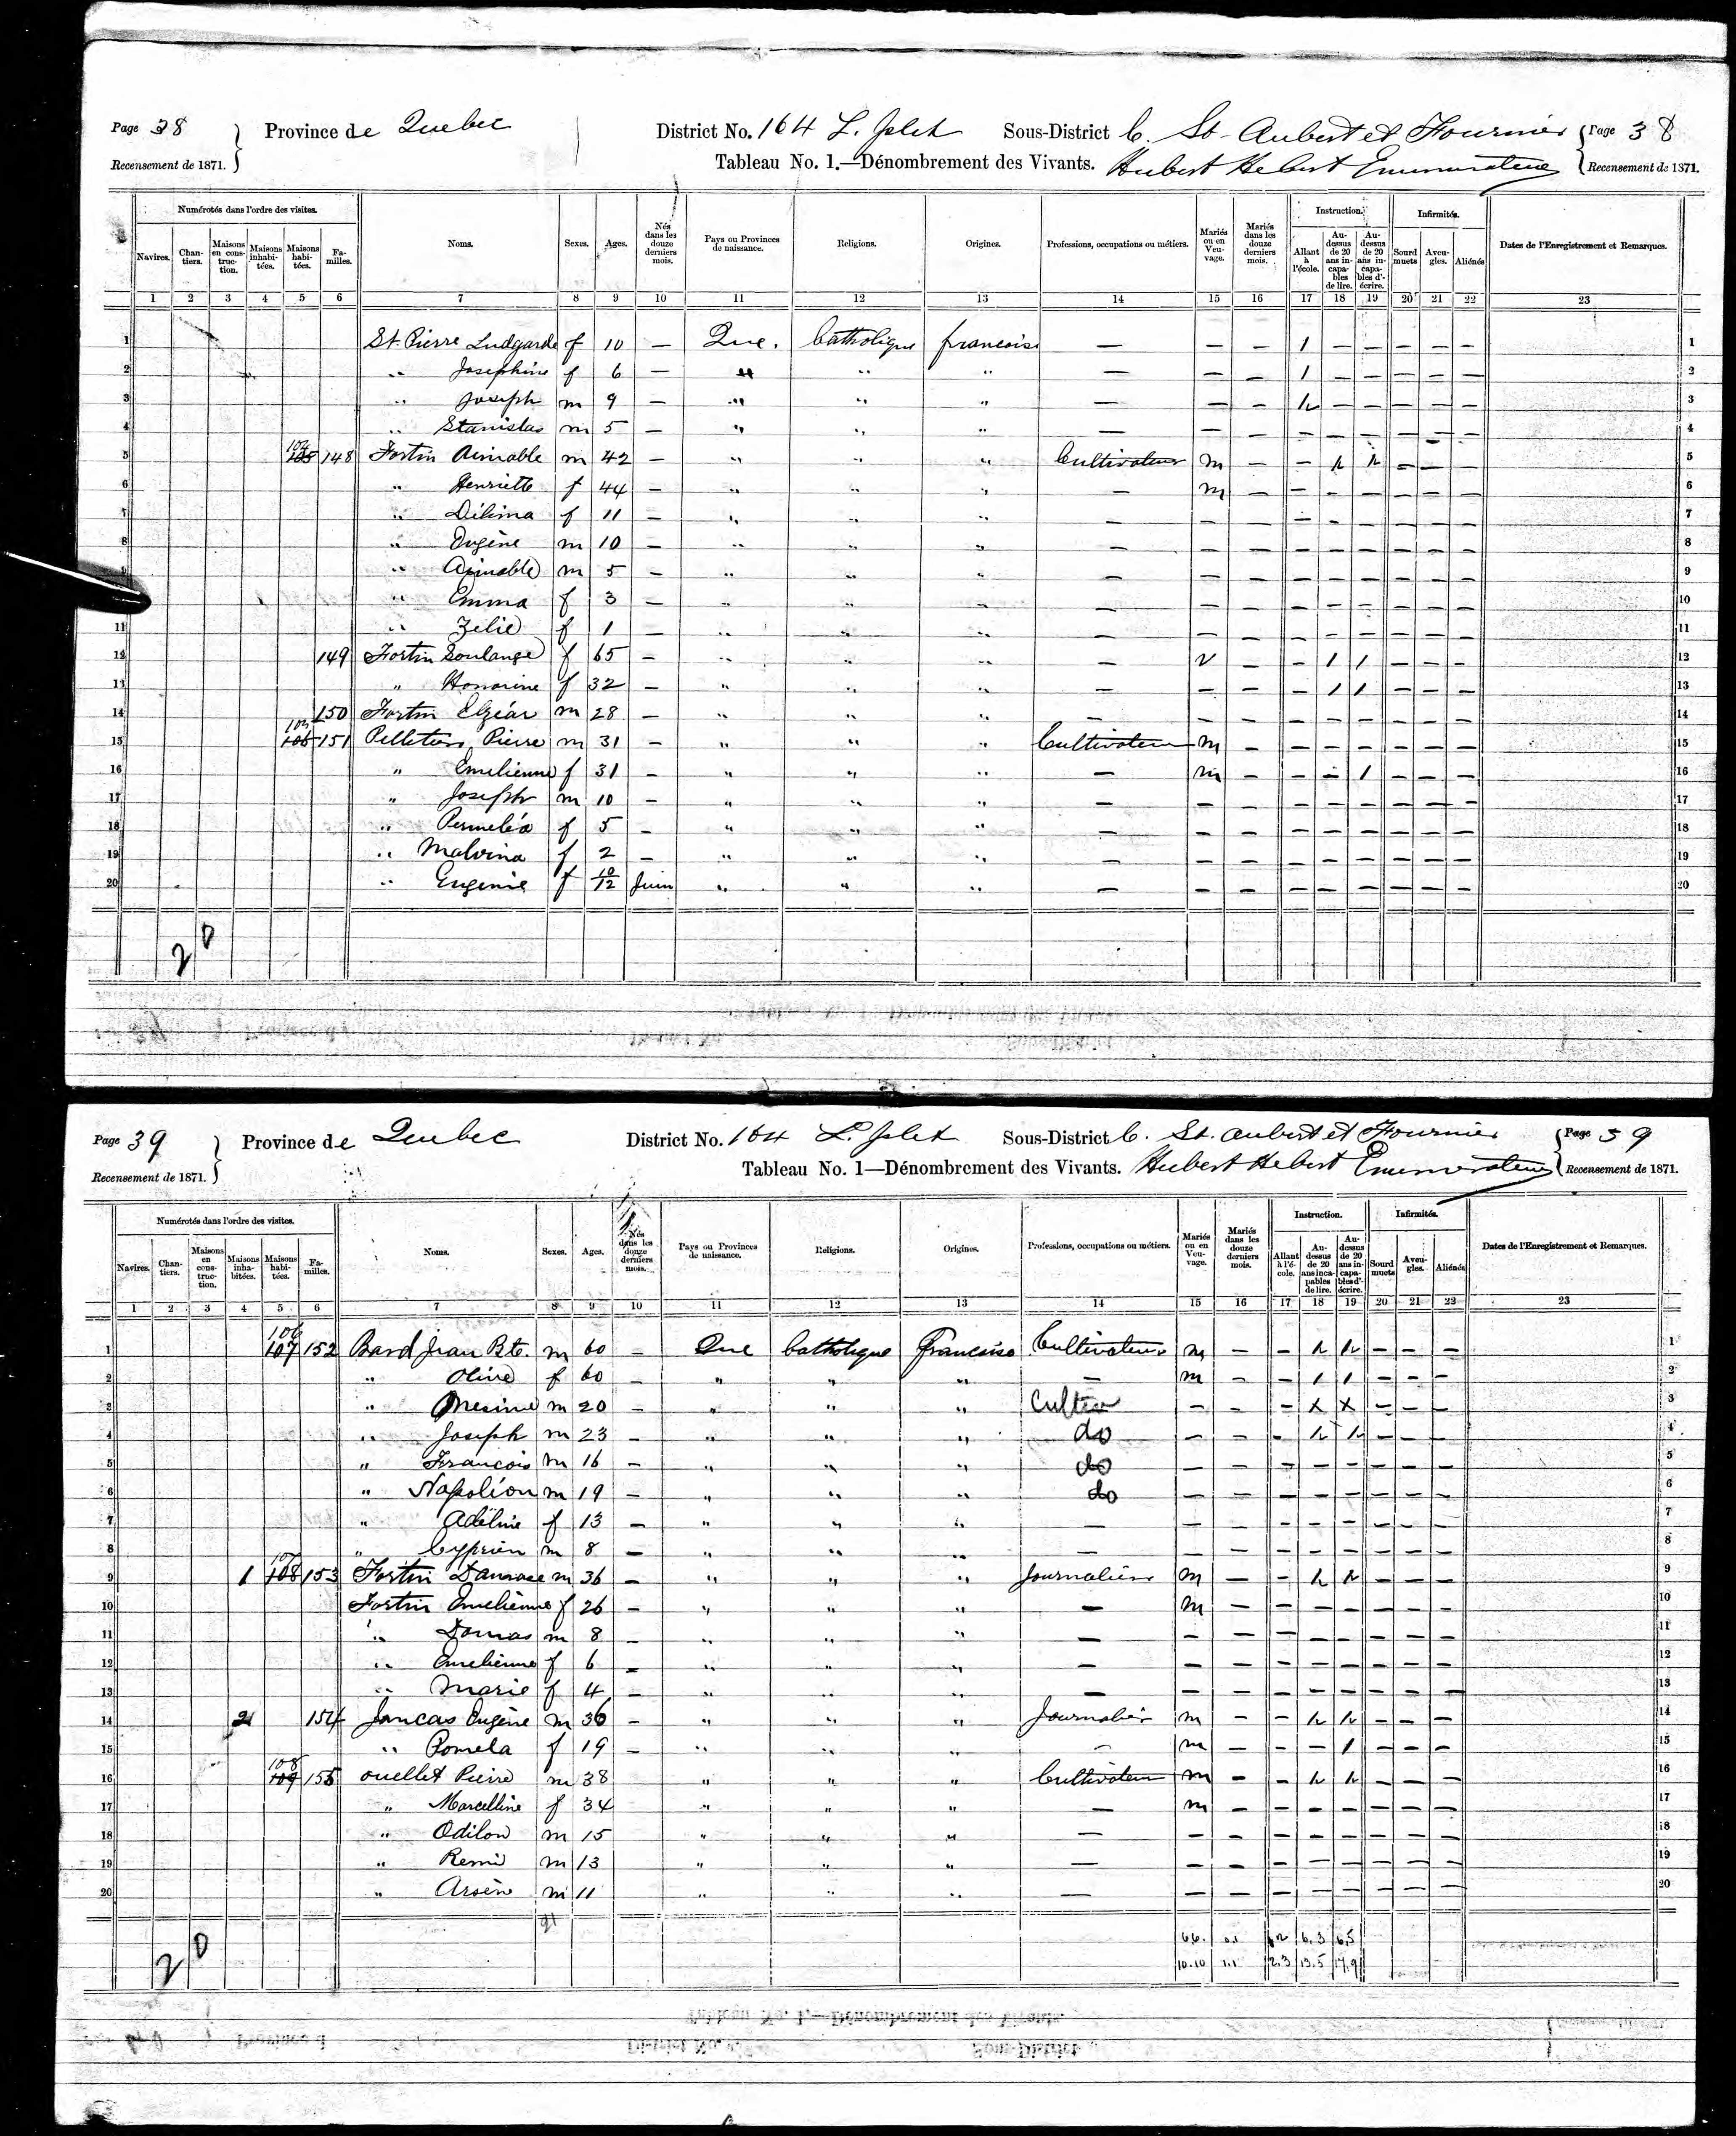 Page 38 Province de Quebec District No. 164 L. Islet Sous-District C. St-Aubert et Fournier Page 38
Recensement de 1871. Tableau No. 1.—Dénombrement des Vivants. Hubert Hebert Enumerateur Recensement de 1871.
Numérotés dans l'ordre des visites. Noms. Sexes. Ages. Nés dans les douze derniers mois. Pays ou Provinces de naissance. Religions. Origines. Professions, occupations ou métiers. Mariés ou en Veuvage. Mariés dans les douze derniers mois. Instruction. Infirmités. Dates de l'Enregistrement et Remarques.
Navires. Chantiers. Maisons en construction. Maisons inhabitées. Maisons habitées. Familles. Allant à l'école. Au-dessus de 20 ans incapables de lire. Au-dessus de 20 ans incapables d'écrire. Sourd muets Aveugles. Aliénés
1 2 3 4 5 6 7 8 9 10 11 12 13 14 15 16 17 18 19 20 21 22 23
1 St. Pierre Ludgarde f 10 — Que. Catholique francoise — — — 1 — — — — — 1
2 " Josephine f 6 — " " " — — — 1 — — — — — 2
3 " Joseph m 9 — " " " — — — — — — — — 3
4 " Stanislas m 5 — " " " — — — — — — — — — 4
5 104 105 148 Fortin Aimable m 42 — " " " Cultivateur m — — — — — 5
6 " Henriette f 44 — " " " — m — — — — — — — 6
7 " Délima f 11 — " " " — — — — — — — — — 7
8 " Eugène m 10 — " " " — — — — — — — — — 8
9 " Aimable m 5 — " " " — — — — — — — — — 9
10 " Emma f 3 — " " " — — — — — — — — — 10
11 " Zelie f 1 — " " " — — — — — — — — — 11
12 149 Fortin Soulange f 65 — " " " — v — — 1 1 — — — 12
13 " Honorine f 32 — " " " — — — — 1 1 — — — 13
14 150 Fortin Elzéar m 28 — " " " — — — — — — — — — 14
15 105 106 151 Pelletier Pierre m 31 — " " " Cultivateur m — — — — — — — 15
16 " Emelienne f 31 — " " " — m — — — 1 — — — 16
17 " Joseph m 10 — " " " — — — — — — — — — 17
18 " f 5 — " " " — — — — — — — — — 18
19 " Malvina f 2 — " " " — — — — — — — — — 19
20 " Eugenie f 10/12 Juin " " " — — — — — — — — — 20
20
Page 39 Province de Quebec District No. 164 L. Islet Sous-District C. St. Aubert et Fournier Page 39
Recensement de 1871. Tableau No. 1—Dénombrement des Vivants. Hubert Hebert Enumerateur Recensement de 1871.
Numérotés dans l'ordre des visites. Noms. Sexes. Ages. Nés dans les douze derniers mois. Pays ou Provinces de naissance. Religions. Origines. Professions, occupations ou métiers. Mariés ou en Veuvage. Mariés dans les douze derniers mois. Instruction. Infirmités. Dates de l'Enregistrement et Remarques.
Navires. Chantiers. Maisons en construction. Maisons inhabitées. Maisons habitées. Familles. Allant à l'école. Au-dessus de 20 ans incapables de lire. Au-dessus de 20 ans incapables d'écrire. Sourd muets Aveugles. Aliénés
1 2 3 4 5 6 7 8 9 10 11 12 13 14 15 16 17 18 19 20 21 22 23
1 106 107 152 Bard Jean Bte. m 60 — Que Catholique Francoise Cultivateur m — — — — — 1
2 " Olive f 60 — " " " — m — — 1 1 — — — 2
3 " m 20 — " " " Cultiv — — — x x — — — 3
4 " Joseph m 23 — " " " do — — — — — — 4
5 " Francois m 16 — " " " do — — — — — — — — 5
6 " Napoléon m 19 — " " " do — — — — — — — — 6
7 " Adéline f 13 — " " " — — — — — — — — — 7
8 " Cyprien m 8 — " " " — — — — — — — — — 8
9 1 107 108 153 Fortin Damase m 36 — " " " Journalier m — — — — — 9
10 Fortin Emelienne f 26 — " " " — m — — — — — — — 10
11 " m 8 — " " " — — — — — — — — — 11
12 " Emelienne f 6 — " " " — — — — — — — — — 12
13 " Marie f 4 — " " " — — — — — — — — — 13
14 154 Joncas Eugène m 36 — " " " Journalier m — — — — — 14
15 " Pomela f 19 — " " " — m — — — 1 — — — 15
16 108 109 155 Ouellet Pierre m 38 " " " Cultivateur m — — — — — 16
17 " Marcelline f 34 " " " — m — — — — — — — 17
18 " Odilon m 15 " " " — — — — — — — — — 18
19 " Remi m 13 " " " — — — — — — — — — 19
20 " Arsène m 11 " " " — — — — — — — — — 20
20